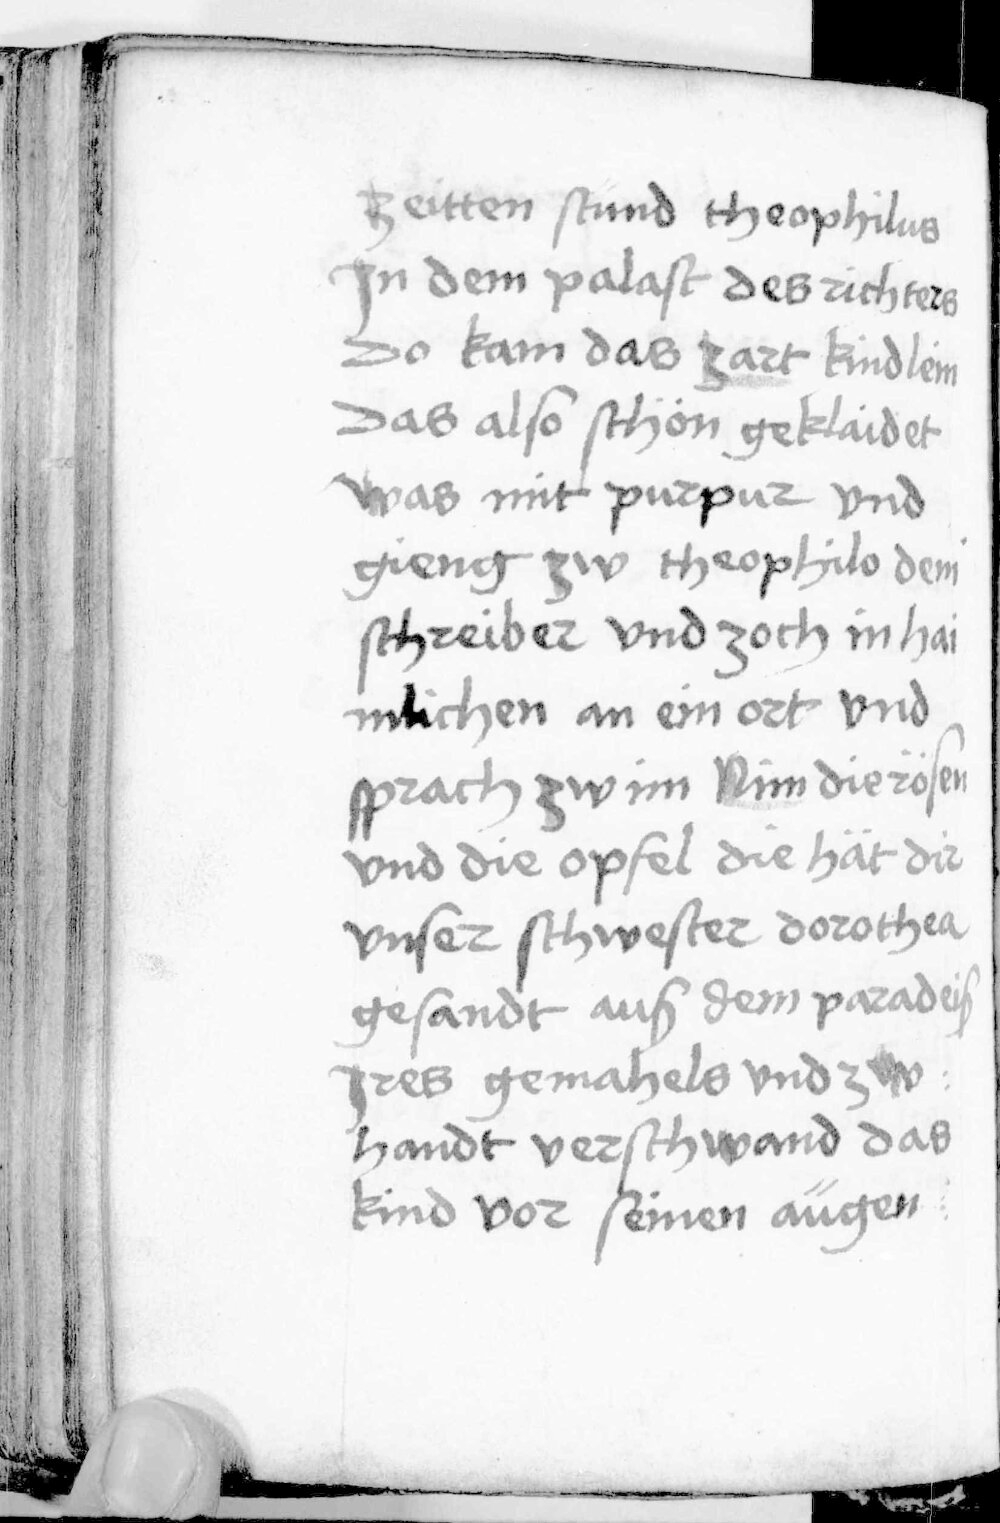 zeitten stund theophilus
In dem palast des richters
Do kam das zart kindlein
Das also schön geklaidet
was mit purpur vnd
gieng zw theophilo dem
schreiber vnd zoch in hai
mlichen an ein ort vnd
sprach zw im Nim die rösen
vnd die opfel die hät dir
vnser schwester dorothea
gesandt auß dem paradeiß
Ires gemahels vnd zw
handt verschwand das
kind vor seinen aügen